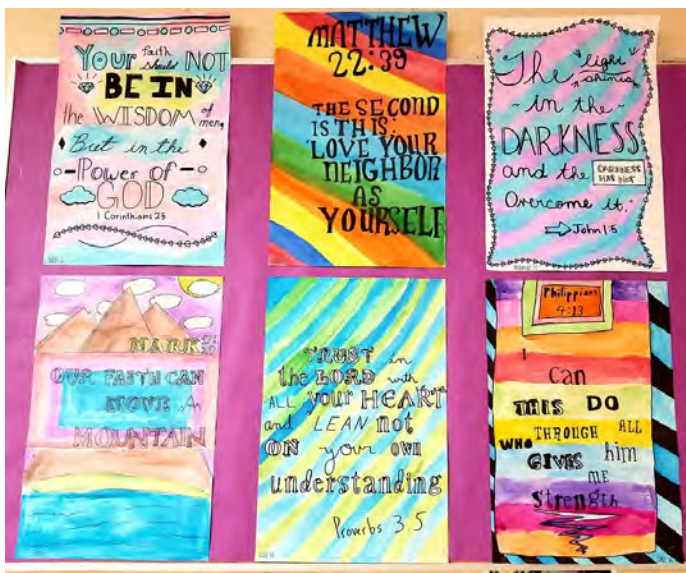 Your faith should NOT
BE IN
the WISDOM of men,
But in the
Power of
GOD
1 Corinthians 2:5
MATTHEW
22:39
THE SECOND
IS THIS:
LOVE YOUR
NEIGHBOR
AS
YOURSELF
"The light shines
- in the -
DARKNESS
and the DARKNESS HAS NOT
Overcome it."
John 1:5
MARK
OUR FAITH CAN
MOVE A
MOUNTAIN
TRUST in
the LORD with
ALL your HEART
and LEAN not
ON your own
understanding
Proverbs 3:5
Philippians
4:13
I
Can
THIS DO
THROUGH ALL
WHO
GIVES him
ME
Strength